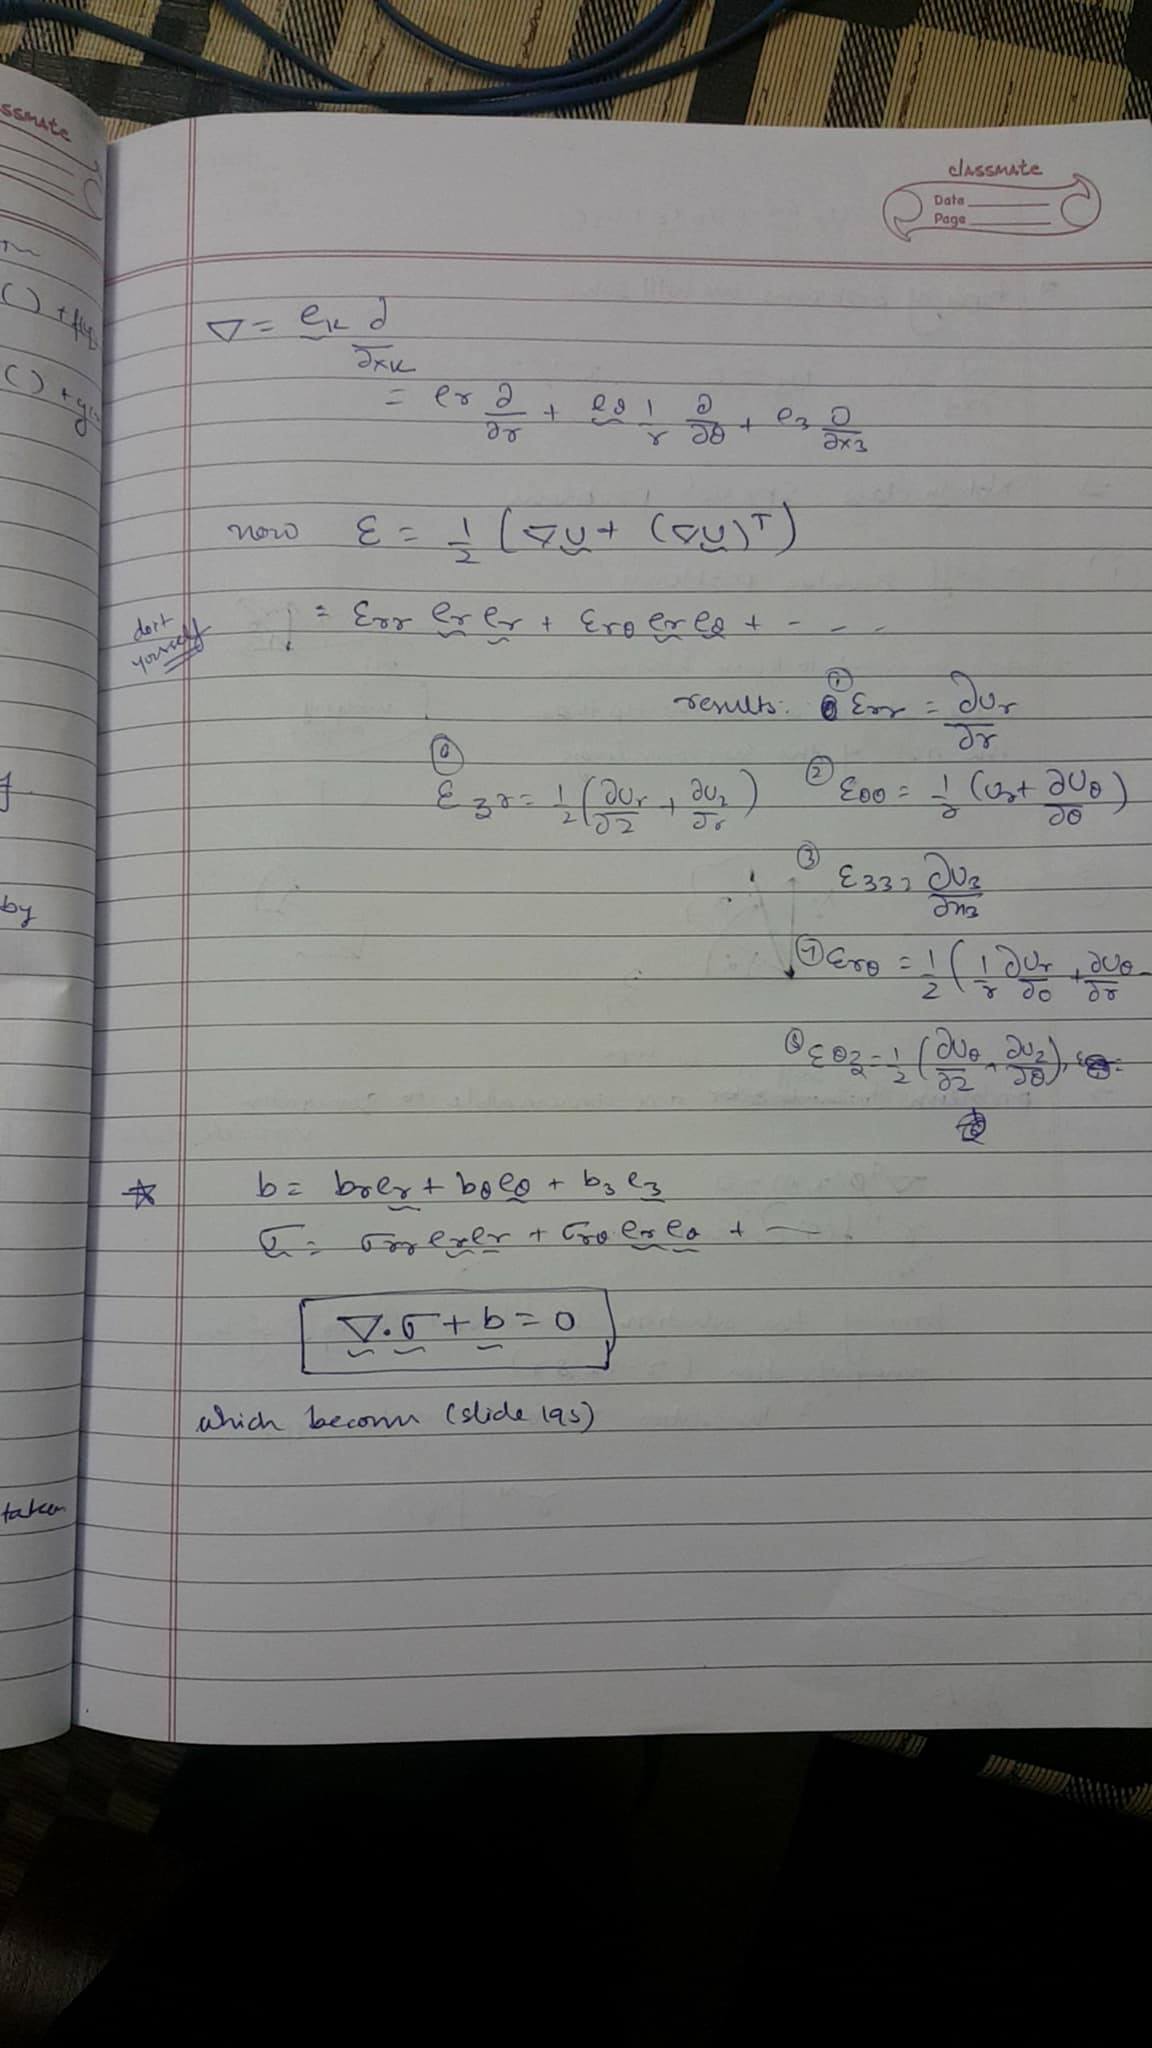 classmate
Date
Page
∇ = e_k ∂/∂x_k
= e_r ∂/∂r + e_θ 1/r ∂/∂θ + e_3 ∂/∂x_3
now ε = 1/2 (∇u + (∇u)^T)
= ε_rr e_r e_r + ε_rθ e_r e_θ + - - -
do it
yourself
results: ① ε_rr = ∂u_r/∂r
⑥ ε_zr = 1/2 (∂u_r/∂z + ∂u_z/∂r)
② ε_θθ = 1/r (u_r + ∂u_θ/∂θ)
③ ε_33 = ∂u_3/∂x_3
④ ε_rθ = 1/2 (1/r ∂u_r/∂θ + ∂u_θ/∂r -
⑤ ε_θz = 1/2 (∂u_θ/∂z + ∂u_z/∂θ),
☆ b = b_r e_r + b_θ e_θ + b_3 e_3
σ = σ_rr e_r e_r + σ_rθ e_r e_θ + —
∇.σ + b = 0
which becom (slide 193)
by
taken